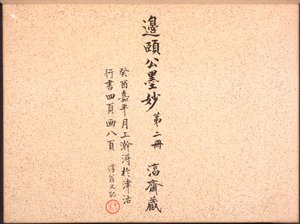 邊頤公墨妙 第二冊 滆齋藏
癸酉嘉平月上澣得於津沽
行書四頁画八頁 澤翁又記